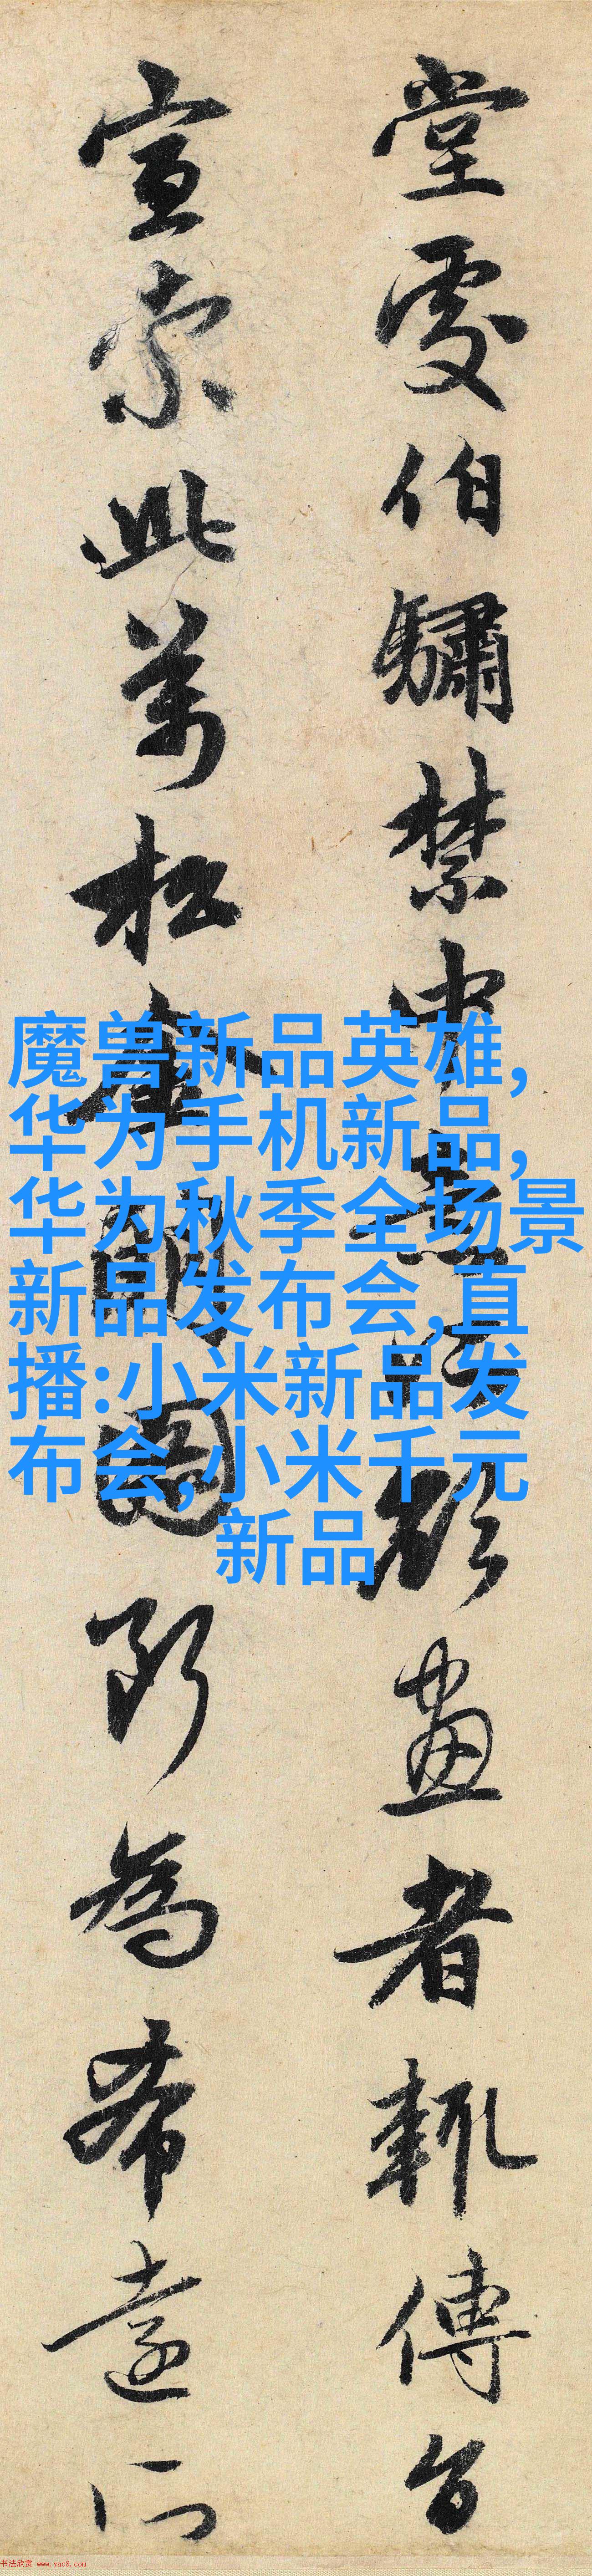 堂處伯驌禁中意所欲畫者輒傳旨
宣索此萬松金闕圖為希遠所
魔兽新品英雄,
华为手机新品,
华为秋季全场景
新品发布会,直
播:小米新品发
布会,小米千元
新品
书法欣赏 www.yac8.com